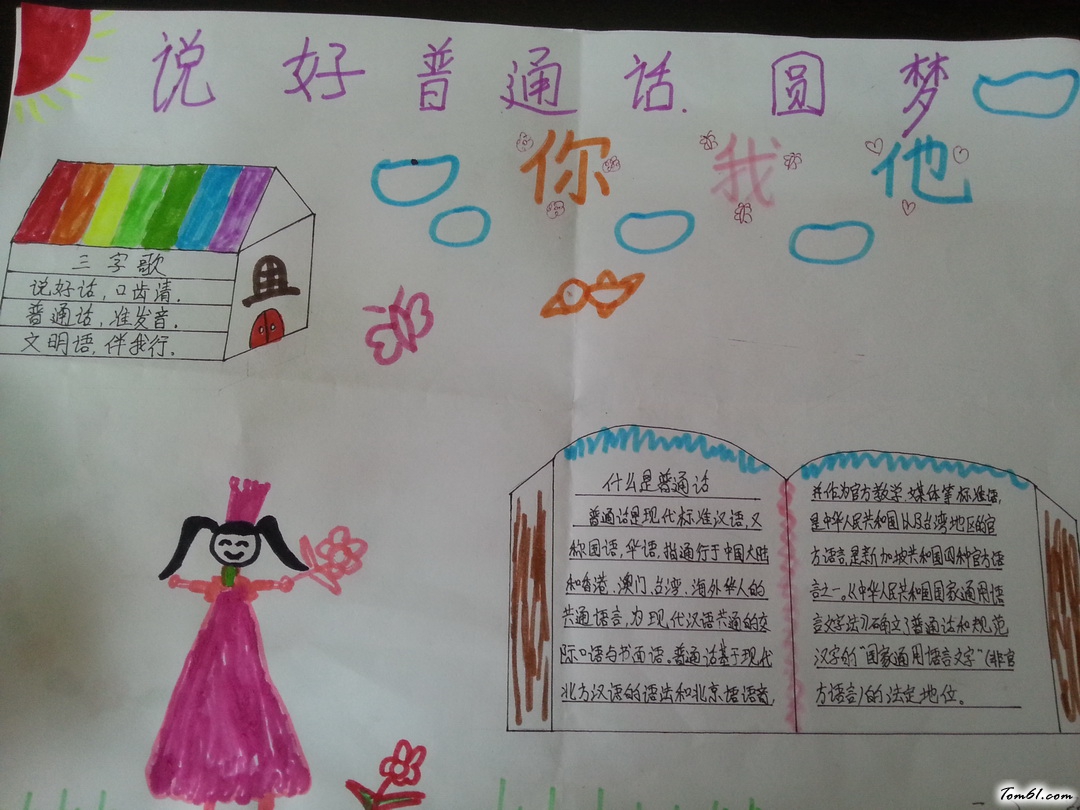 说好普通话.圆梦
你我他
三字歌
说好话,口齿清.
普通话,准发音.
文明语,伴我行.
什么是普通话
普通话是现代标准汉语,又
称国语,华语,指通行于中国大陆
和香港、澳门、台湾、海外华人的
共通语言,为现代汉语共通的交
际口语与书面语。普通话基于现代
北方汉语的语法和北京话语音,
并作为官方教学、媒体等标准语,
是中华人民共和国以及台湾地区的官
方语言,是新加坡共和国四种官方语
言之一。《中华人民共和国国家通用语
言文字法》确立了普通话和规范
汉字的“国家通用语言文字”(非官
方语言)的法定地位。
Tom61.com